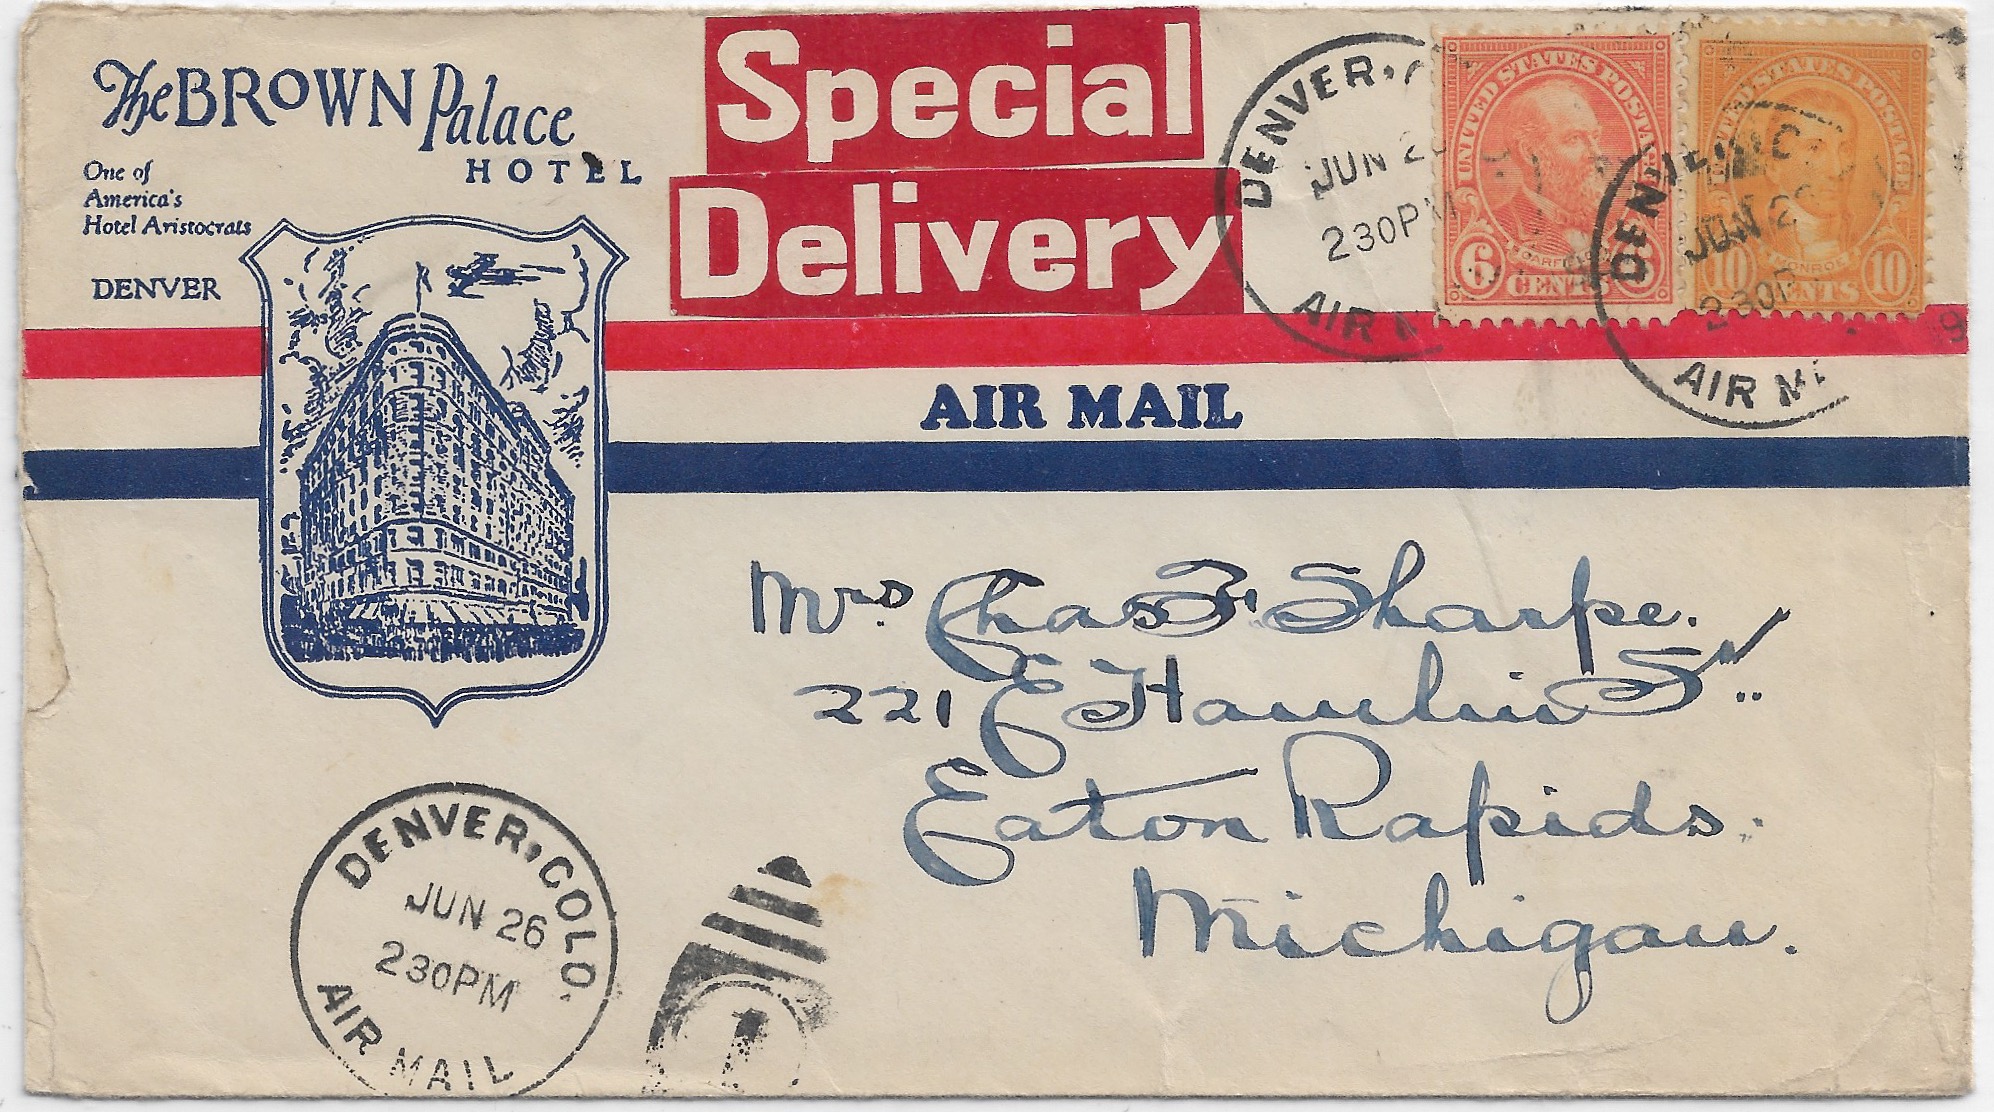 The BROWN Palace
HOTEL
One of
America's
Hotel Aristocrats
DENVER
Special
Delivery
DENVER, C
JUN 2
230PM
AIR M
UNITED STATES POSTAGE
6 GARFIELD
CENTS
UNITED STATES POSTAGE
MONROE
10 CENTS 10
DENVER, C
JUN 2
230P
AIR MA
AIR MAIL
Mrs. Chas F. Sharpe.
221 E Hamlin St.
Eaton Rapids.
Michigan.
DENVER, COLO.
JUN 26
230PM
AIR MAIL
1